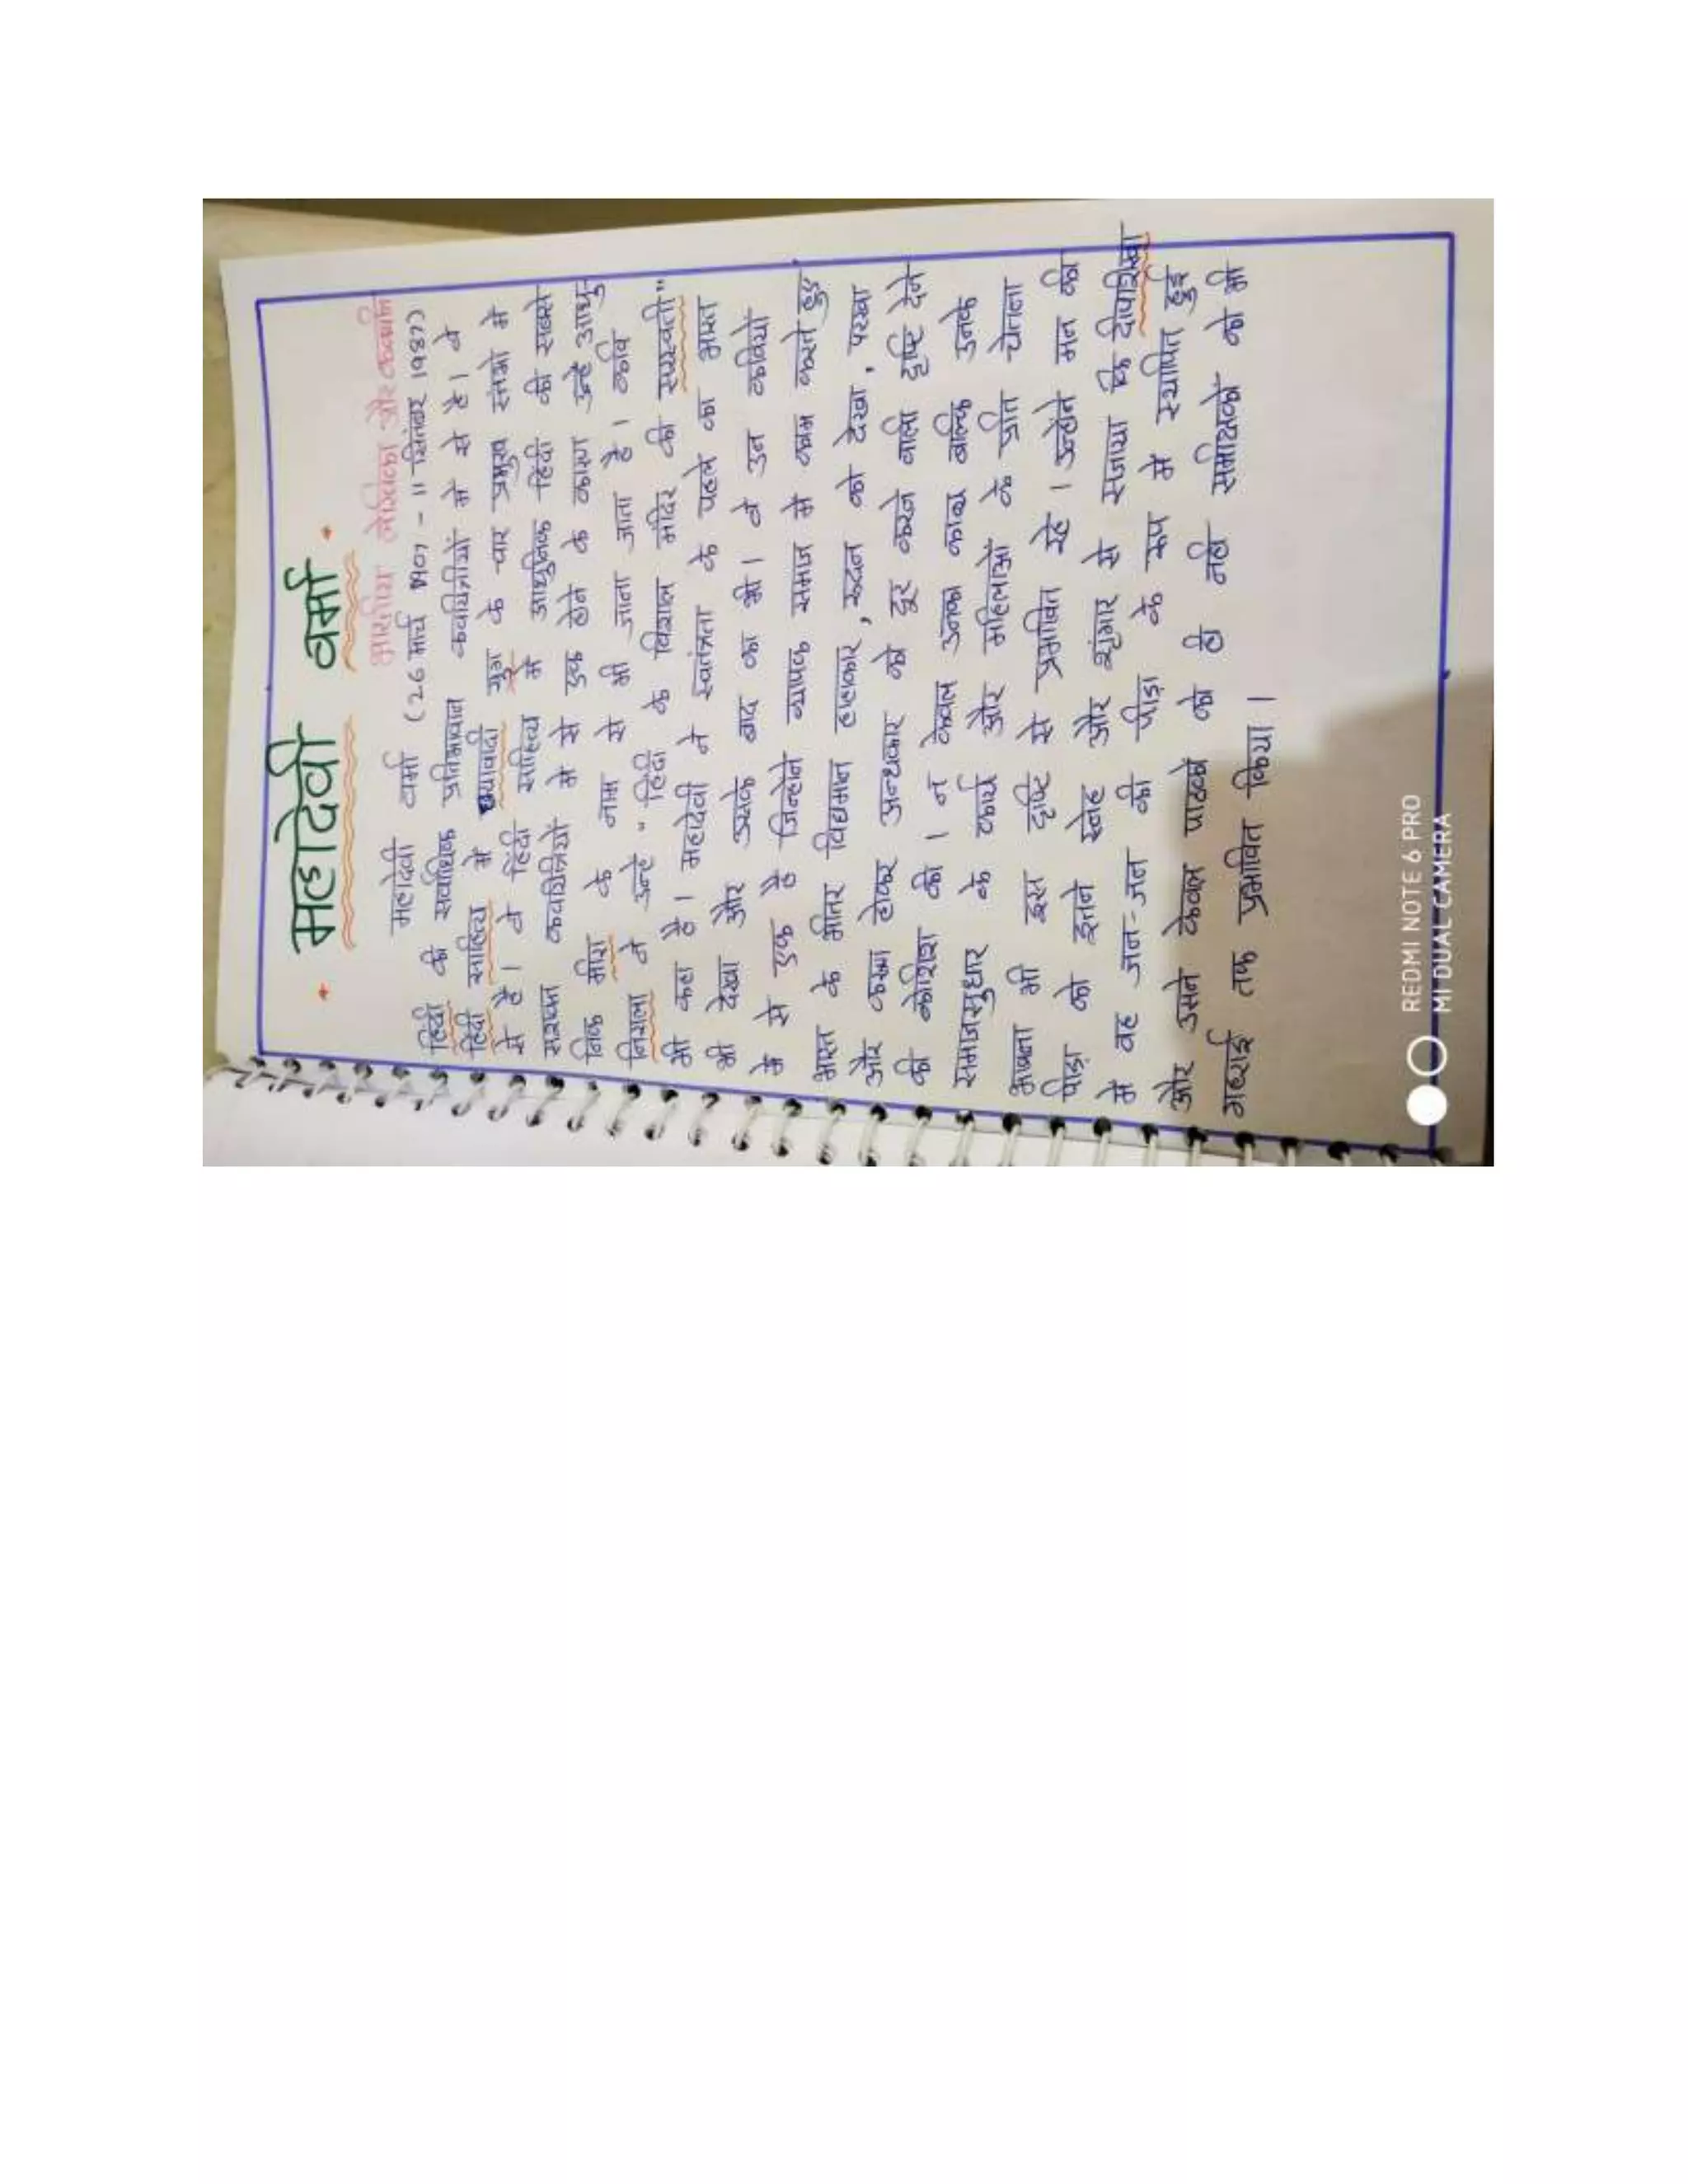 महादेवी वर्मा
भारतीय लेखिका और
महादेवी वर्मा (26 मार्च 1907 - 11 सितंबर 1987)
हिंदी की सर्वाधिक प्रतिभावान कवयित्रीयों में से है। वे
हिंदी साहित्य में छायावादी युग के चार प्रमुख स्तंभो में
से है। वे हिंदी साहित्य में आधुनिक हिंदी की सबसे
सशक्त कवयित्रियों में से एक होने के कारण उन्हे आधु-
निक मीरा के नाम से भी जाना जाता है। कवि
निराला ने उन्हे "हिंदी के विशाल मंदिर की सरस्वती"
भी कहा है। महादेवी ने स्वतंत्रता के पहले का भारत
भी देखा और उसके बाद का भी। वे उन कवियो
में से एक है जिन्होने व्यापक समाज में काम करते हुए
भारत के भीतर विद्यमान हाहाकार, रुदन को देखा, परखा
और करुण होकर अन्धकार को दूर करने वाली दृष्टि देने
की कोशिश की। न केवल उनका काव्य बल्कि उनके
समाजसुधार के कार्य और महिलाओं के प्रति चेतना
भावना भी इस दृष्टि से प्रभावित रहे। उन्होंने मन की
पीड़ा को इतने स्नेह और शृंगार से सजाया कि दीपशिखा
में वह जन-जन की पीड़ा के रूप में स्थापित हुई
और उसने केवल पाठको को ही नही समीक्षको को भी
गहराई तक प्रभावित किया।
REDMI NOTE 6 PRO
MI DUAL CAMERA